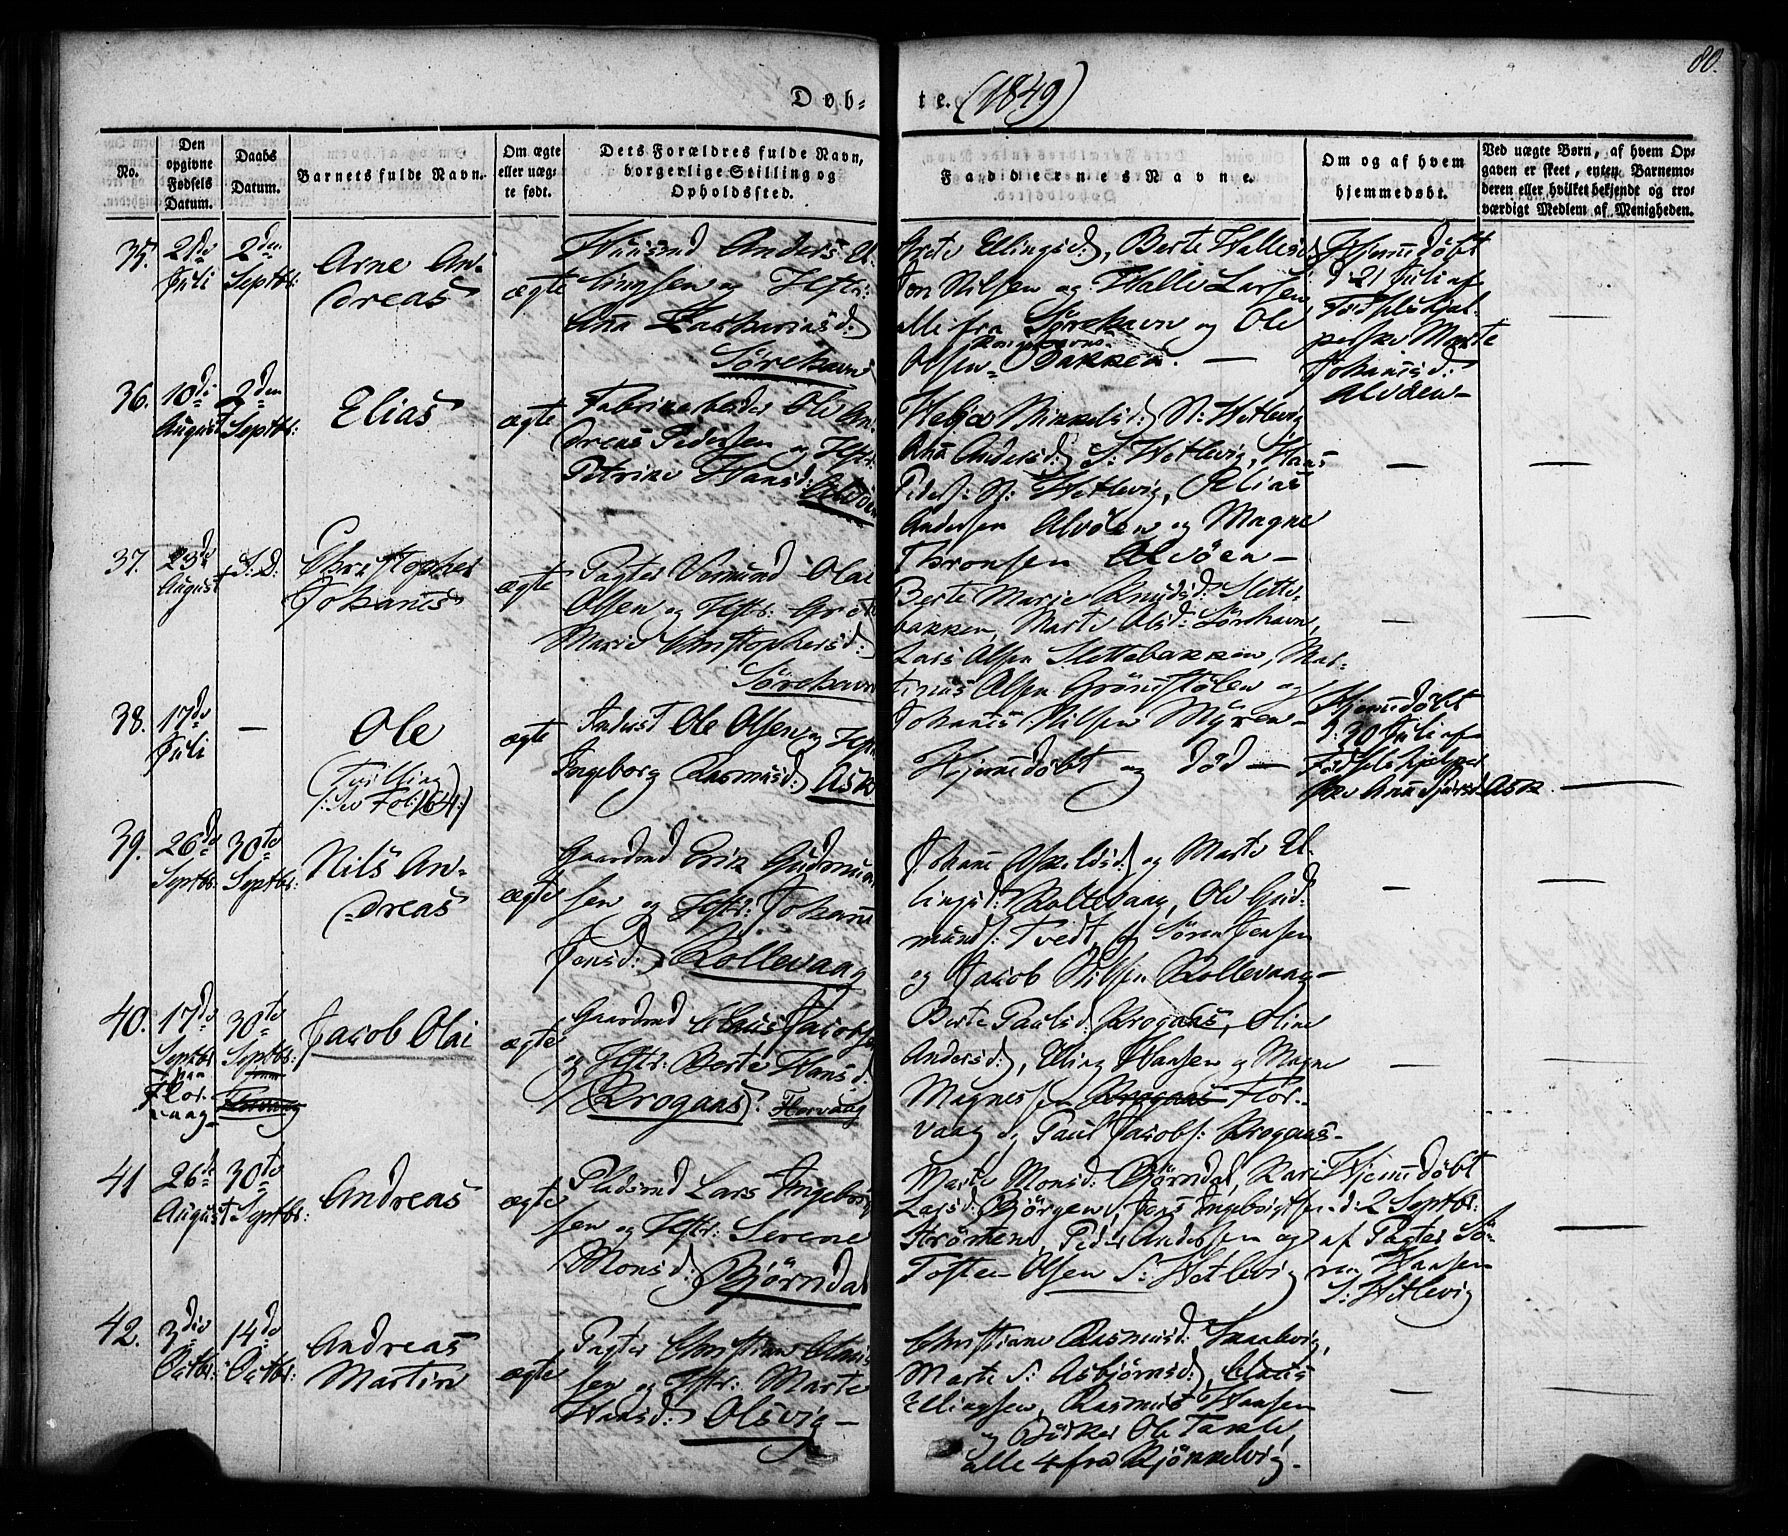 80.
Døb- te. (1849)
No.
Den opgivne Fødsels Datum.
Daabs Datum.
Barnets fulde Navn.
Om ægte eller uægte født.
Dets Forældres fulde Navn, borgerlige Stilling og Opholdsted.
Faddernes Navne.
Om og af hvem hjemmedøbt.
Ved uægte Børn, af hvem Opgaven er skeet, enten Barnemoderen eller hvilket bekjendt og troværdigt Medlem af Menigheden.
35. 21de Juli
2den Septbr:
Arne An-
dreas
ægte
Huusmd Anders El-
lingsen og Hstr:
Anna Zachariasd:
Sørehavn
Marte Ellingsd:, Berte Hallesd:
Jon Nilsen og Halle Larsen
alle fra Sørehavn og Ole
Olsen Bakken. —
Hjemedøbt
d 21 Juli af
Fødselshjæl-
perske Marte
Johanesd:
Alvøen —
—
36. 10de August
2den Septbr:
Elias
ægte
Fabrikarbeider Ole An-
dreas Pedersen og Hstr:
Petrine Hansd: Alvøen
Helga Mikkelsd: N: Hetlevig
Ana Andersd: S: Hetlevig, Hans
Peders: N: Hetlevig, Elias
Andersen Alvøen og Magne
Thronsen Alvøen —
—
—
37. 23de August
S: D:
Christopher
Johanes
ægte
Pagter Vemund Olai
Olsen og Hstr: Grete
Marie Christophersd:
Sørehavn
Berte Marie Knudsd: Slette-
bakken, Marte Olsd: Sørehavn,
Lars Olsen Slettebakken, Mar-
tinus Olsen Grønestølen og
Johanes Nilsen Myren —
—
—
38. 17de Juli
—
Ole
(Tvilling
:See Fol: 164:)
ægte
Inderst Ole Olsen og Hstr:
Ingeborg Rasmusd: Ask
Hjemedøbt og død —
Hjemedøbt
d: 30 Juli af
Fødselshjelper-
ske Ane Sjursd: Ask
—
39. 26de Septbr:
30te Septbr:
Nils An-
dreas
ægte
Gaardmd Erik Gudmun-
sen og Hstr: Johane
Jensd: Rollevaag
Johane Askelsd: og Marte El-
lingsd: Rollevaag, Ole Gud-
munds: Tvedt, og Søren Jensen
og Jacob Nilsen Rollevaag —
—
—
40. 17de Septbr:
Flor-
vaag
30te Septbr:
Florvaag
Jacob Olai
ægte
Gaardmd Claus Jacobsen
og Hstr: Berte Hansd:
(Krogaas): Florvaag
Berte Paulsd: Krogaas, Oline
Andersd:, Elling Hansen og Magne
Magnesen Krogaas Flor-
vaag og Paul Jacobs: Krogaas —
—
—
41 26de August
30te Septbr:
Andreas
ægte
Pladsmd Lars Ingebrigt-
sen og Hstr: Serene
Monsd: Bjørndal
Marte Monsd: Bjørndal, Kari
Larsd: Bjørgen, Jens Ingebrigtsen
Strømen, Peder Andersen og
Tosten Olsen S: Hetlevig
Hjemedøbt
d: 2 Septbr:
af Pagter Sø-
ren Hansen
S: Hetlevig
—
42. 3die Octbr:
14de Octbr:
Andreas
Martin
ægte
Pagter Christian Claus-
sen og Hstr: Marte
Hansd: Olsvig —
Christiane Rasmusd: Snaalevig,
Marte S: Asbjørnsd:, Claus
Ellingsen, Rasmus Hansen
og Bødker Ole Takle,
alle 4 fra Kjøkkelvig —
—
—